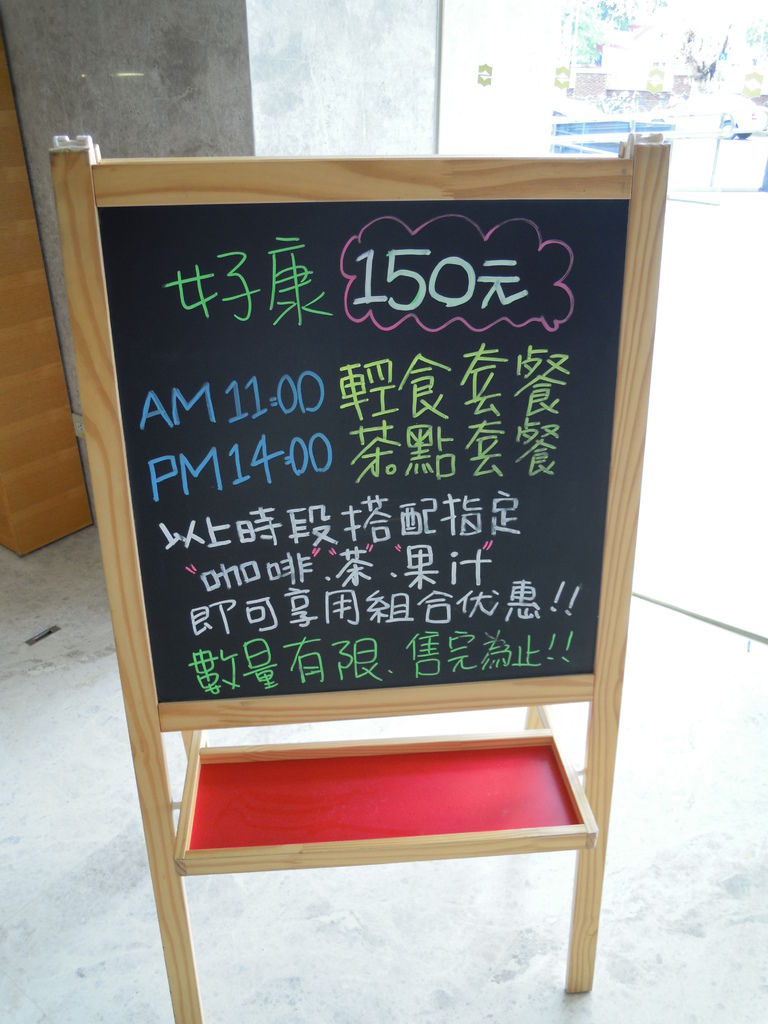 好康 150元
AM 11:00 輕食套餐
PM 14:00 茶點套餐
以上時段搭配指定
"咖啡"、"茶"、"果汁"
即可享用組合优惠!!
數量有限、售完為止!!